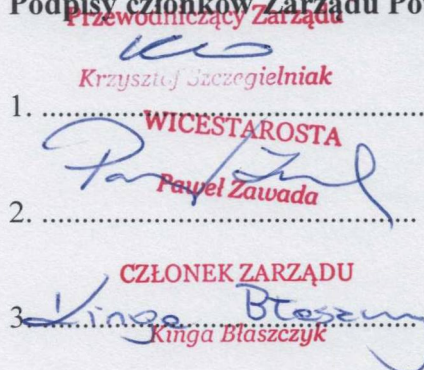 Podpisy członków Zarządu Po
Przewodniczący Zarządu
Krzysztof Szczegielniak
1. ........................................
WICESTAROSTA
Paweł Zawada
2. ........................................
CZŁONEK ZARZĄDU
3. Kinga Błaszczy
Kinga Błaszczyk